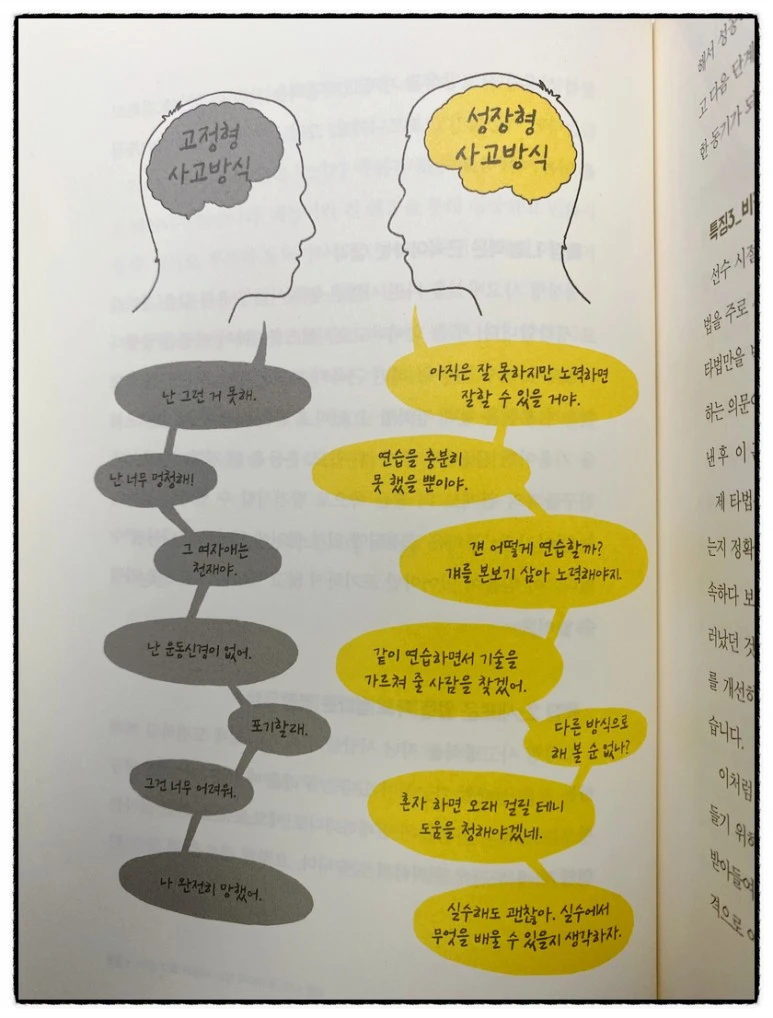 고정형
사고방식
난 그런 거 못해.
난 너무 멍청해!
그 여자애는
천재야.
난 운동신경이 없어.
포기할래.
그건 너무 어려워.
나 완전히 망했어.
성장형
사고방식
아직은 잘 못하지만 노력하면
잘할 수 있을 거야.
연습을 충분히
못 했을 뿐이야.
걘 어떻게 연습할까?
걔를 본보기 삼아 노력해야지.
같이 연습하면서 기술을
가르쳐 줄 사람을 찾겠어.
다른 방식으로
해 볼 순 없나?
혼자 하면 오래 걸릴 테니
도움을 청해야겠네.
실수해도 괜찮아. 실수에서
무엇을 배울 수 있을지 생각하자.
해서
고 다음 단계
한 동기가
특징3_
선수 시절
법을 주로
타법만을
하는 의문이
낸 후 이
제 타법
는지 정확
속하다 보
러났던 것
를 개선하
습니다.
이처럼
들기 위해
받아들여
격으로